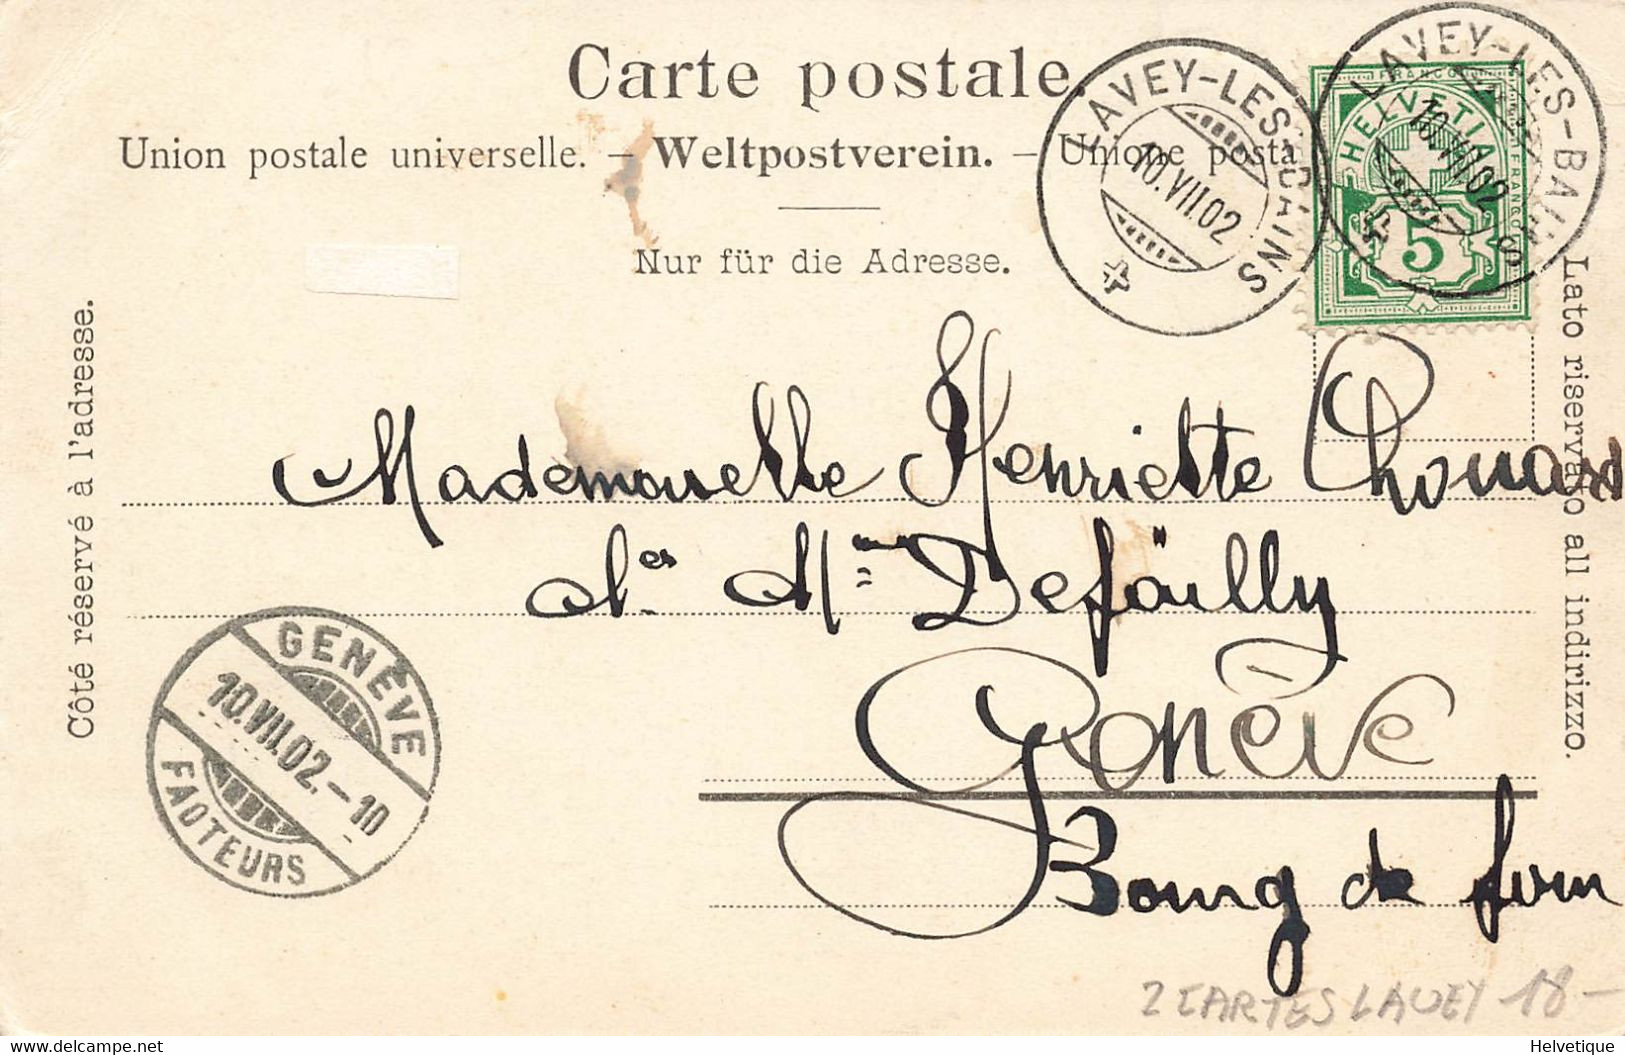 Carte postale.
Union postale universelle. — Weltpostverein. — Unione posta
Nur für die Adresse.
Côté réservé à l'adresse.
Lato riservato all indirizzo.
LAVEY-LES-BAINS
10.VII.02
LAVEY-LES-BAINS
10.VII.02
FRANCO
HELVETIA
FRANCO
5
Mademoiselle Henriette Chouard
chez Mme Defailly
Genève
Bourg de four
GENÈVE
10.VII.02.-10
FACTEURS
2 CARTES LAVEY 18 -
delcampe.net
Helvetique